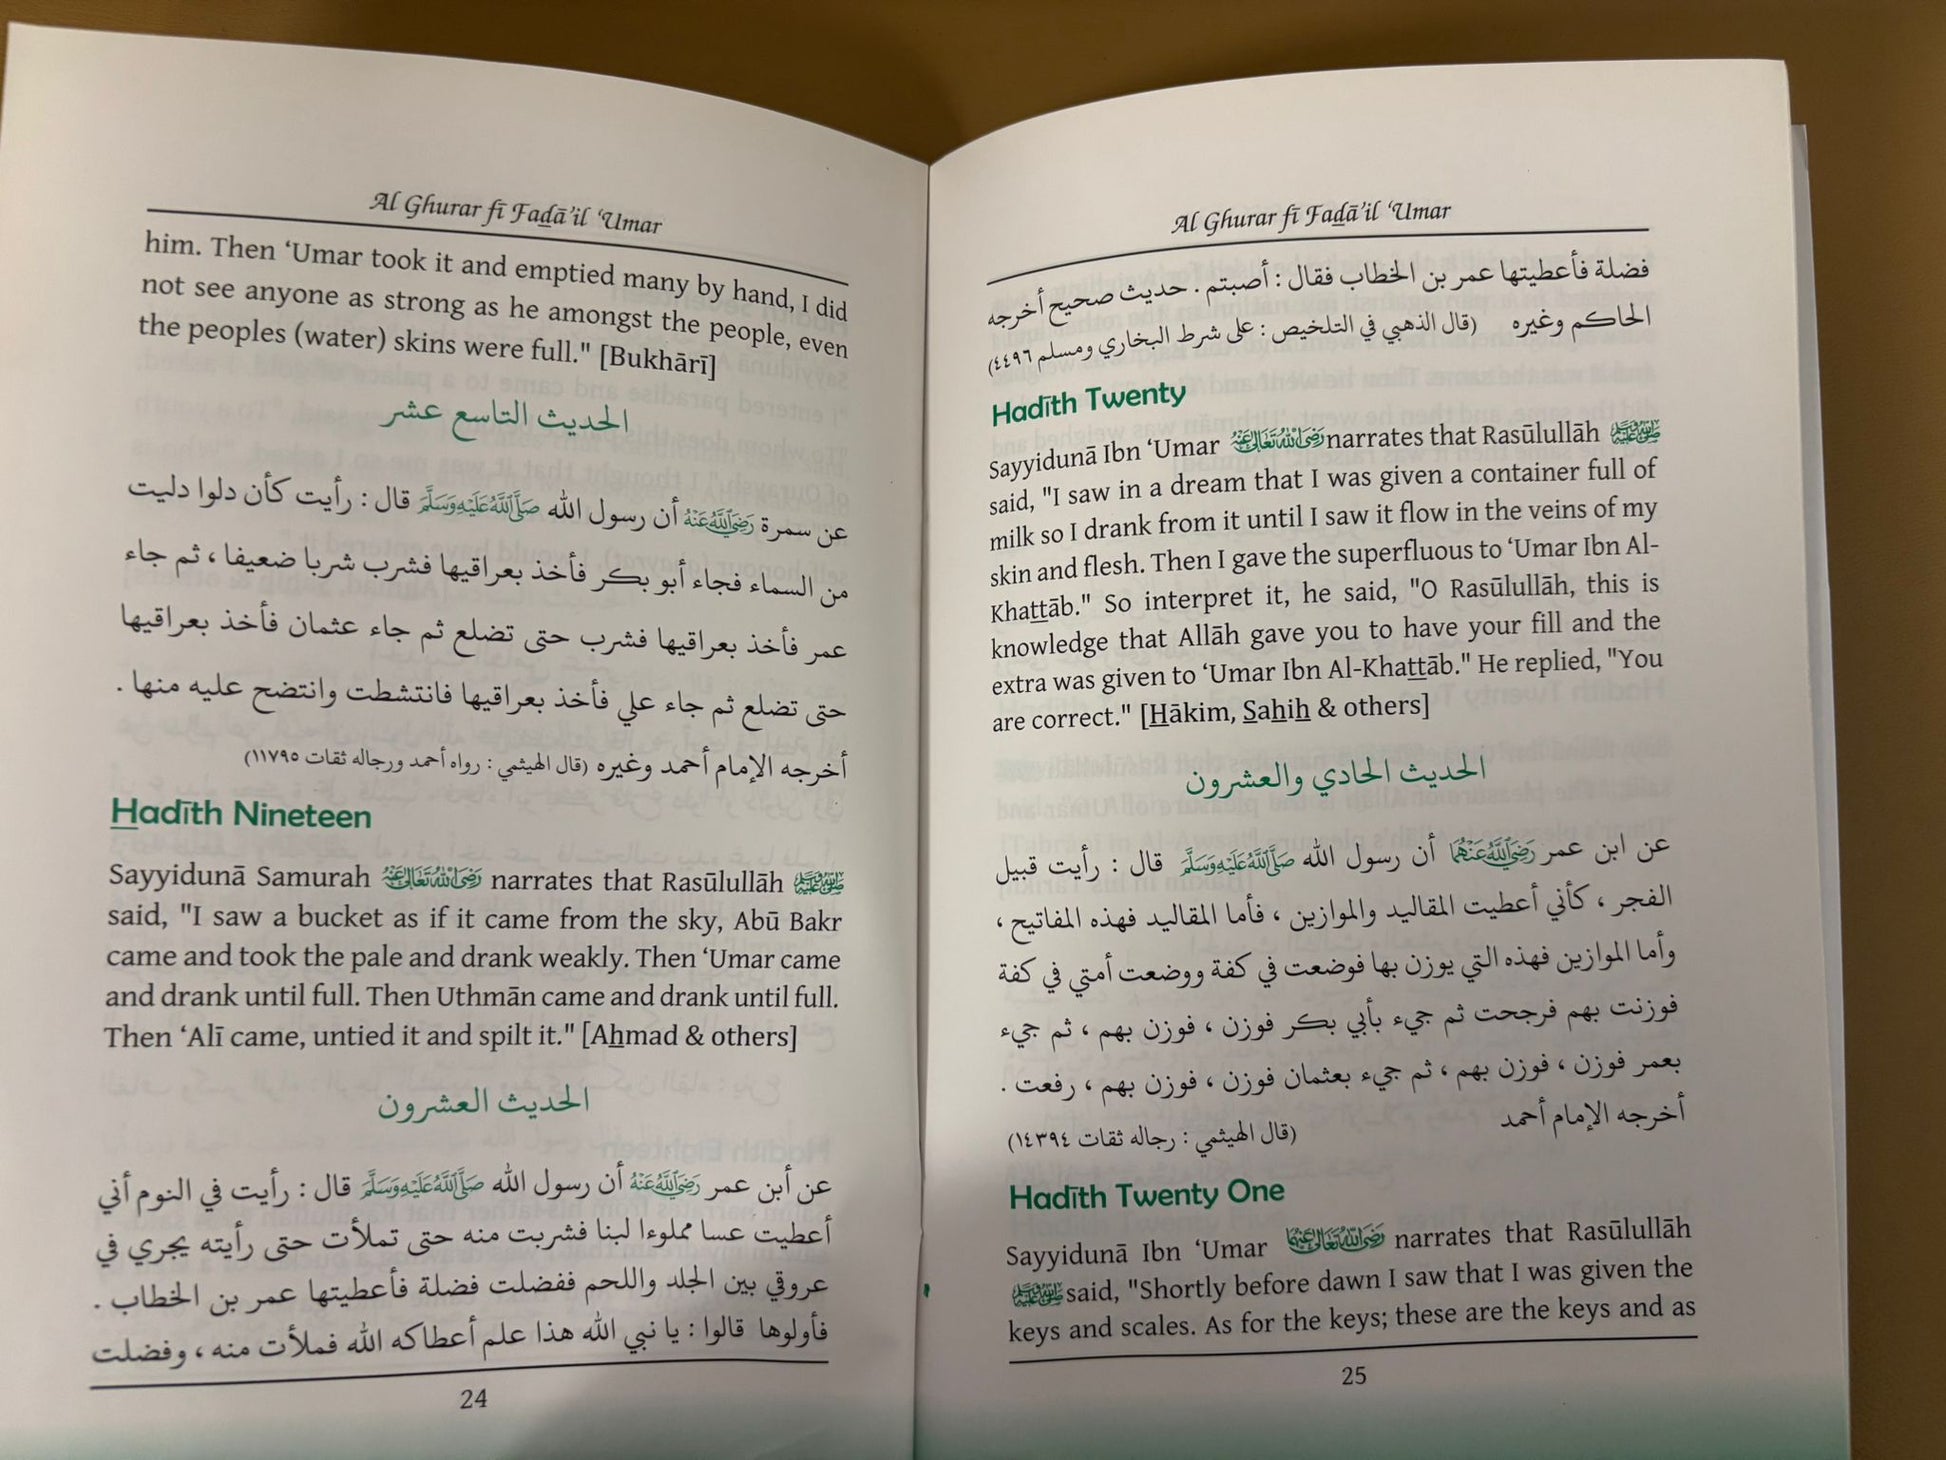 Al Ghurar fī Faḍā’il ‘Umar
him. Then ‘Umar took it and emptied many by hand, I did
not see anyone as strong as he amongst the people, even
the peoples (water) skins were full." [Bukhārī]
الحديث التاسع عشر
عن سمرة رَضِيَ اللَّهُ عَنْهُ أن رسول الله صَلَّى اللَّهُ عَلَيْهِ وَسَلَّمَ قال : رأيت كأن دلوا دليت
من السماء فجاء أبو بكر فأخذ بعراقيها فشرب شربا ضعيفا ، ثم جاء
عمر فأخذ بعراقيها فشرب حتى تضلع ثم جاء عثمان فأخذ بعراقيها
حتى تضلع ثم جاء علي فأخذ بعراقيها فانتشطت وانتضح عليه منها .
أخرجه الإمام أحمد وغيره (قال الهيثمي : رواه أحمد ورجاله ثقات ١١٧٩٥)
Ḥadīth Nineteen
Sayyidunā Samurah رَضِيَ اللهُ تَعَالَى عَنْهُ narrates that Rasūlullāh ﷺ
said, "I saw a bucket as if it came from the sky, Abū Bakr
came and took the pale and drank weakly. Then ‘Umar came
and drank until full. Then Uthmān came and drank until full.
Then ‘Alī came, untied it and spilt it." [Aḥmad & others]
الحديث العشرون
عن أبن عمر رَضِيَ اللَّهُ عَنْهُ أن رسول الله صَلَّى اللَّهُ عَلَيْهِ وَسَلَّمَ قال : رأيت في النوم أني
أعطيت عسا مملوءا لبنا فشربت منه حتى تملأت حتى رأيته يجري في
عروقي بين الجلد واللحم ففضلت فضلة فأعطيتها عمر بن الخطاب .
فأولوها قالوا : يا نبي الله هذا علم أعطاكه الله فملأت منه ، وفضلت
24
Al Ghurar fī Faḍā’il ‘Umar
فضلة فأعطيتها عمر بن الخطاب فقال : أصبتم . حديث صحيح أخرجه
الحاكم وغيره (قال الذهبي في التلخيص : على شرط البخاري ومسلم ٤٤٩٦)
Hadīth Twenty
Sayyidunā Ibn ‘Umar رَضِيَ اللهُ تَعَالَى عَنْهُ narrates that Rasūlullāh ﷺ
said, "I saw in a dream that I was given a container full of
milk so I drank from it until I saw it flow in the veins of my
skin and flesh. Then I gave the superfluous to ‘Umar Ibn Al-
Khaṭṭāb." So interpret it, he said, "O Rasūlullāh, this is
knowledge that Allāh gave you to have your fill and the
extra was given to ‘Umar Ibn Al-Khaṭṭāb." He replied, "You
are correct." [Ḥākim, Ṣaḥiḥ & others]
الحديث الحادي والعشرون
عن ابن عمر رَضِيَ اللَّهُ عَنْهُمَا أن رسول الله صَلَّى اللَّهُ عَلَيْهِ وَسَلَّمَ قال : رأيت قبيل
الفجر ، كأني أعطيت المقاليد والموازين ، فأما المقاليد فهذه المفاتيح ،
وأما الموازين فهذه التي يوزن بها فوضعت في كفة ووضعت أمتي في كفة
فوزنت بهم فرجحت ثم جيء بأبي بكر فوزن ، فوزن بهم ، ثم جيء
بعمر فوزن ، فوزن بهم ، ثم جيء بعثمان فوزن ، فوزن بهم ، رفعت .
أخرجه الإمام أحمد (قال الهيثمي : رجاله ثقات ١٤٣٩٤)
Hadīth Twenty One
Sayyidunā Ibn ‘Umar رَضِيَ اللهُ تَعَالَى عَنْهُمَا narrates that Rasūlullāh
ﷺ said, "Shortly before dawn I saw that I was given the
keys and scales. As for the keys; these are the keys and as
25